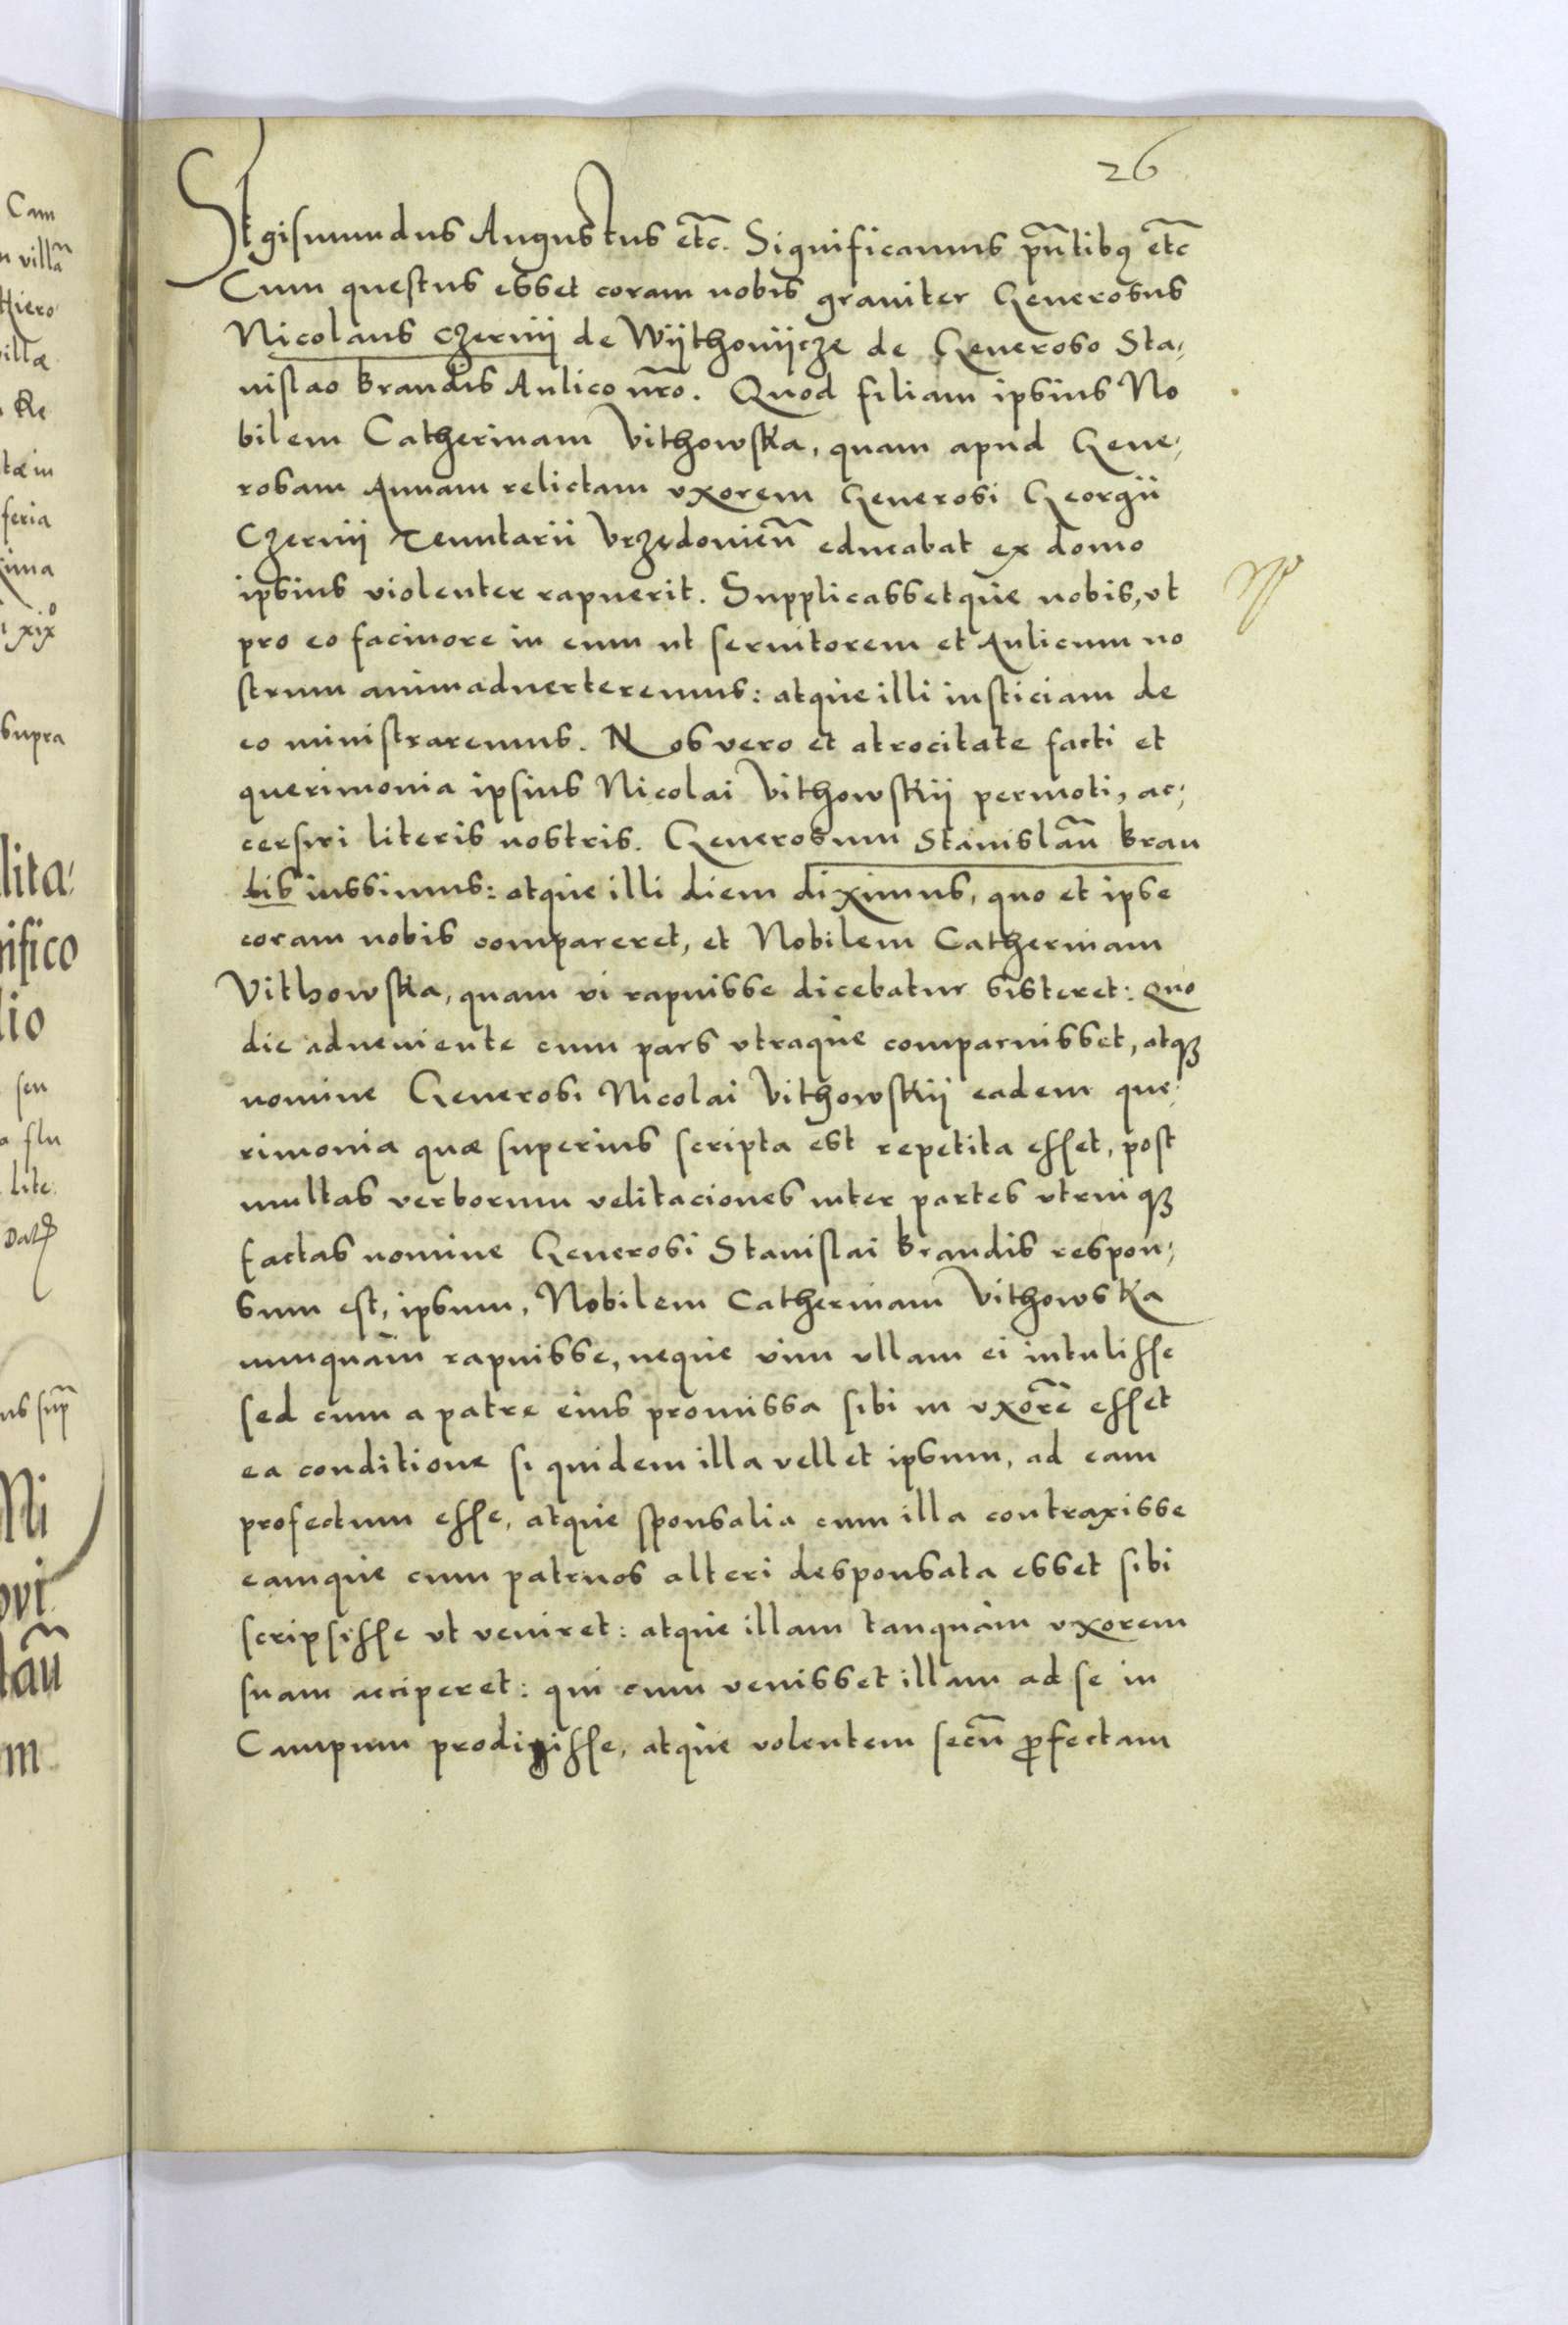 26
Sigismundus Augustus etc̃. Significamus pñtibꝰ etc̃
Cum questus esset coram nobis graviter Generosus
Nicolaus Czernÿ de Wÿthowÿcze de Generoso Sta-
nislao Brandis Aulico nr̃o. Quod filiam ipsius No
bilem Catherinam Vithowska, quam apud Gene-
rosam Annam relictam vxorem Generosi Georgii
Czernij Tenutarii Vrzędovieñ educabat ex domo
ipsius violenter rapuerit. Supplicassetque nobis, vt
pro eo facinore in eum ut servitorem et Aulicum no
strum animadverteremus: atque illi iusticiam de
eo ministraremus. Nos vero et atrocitate facti et
querimonia ipsius Nicolai Vithowskij permoti, ac-
cersiri literis nostris. Generosum Stanislaũ Bran
dis iussimus: atque illi diem diximus, quo et ipse
coram nobis compareret, et Nobilem Catherinam
Vithowska, quam vi rapuisse dicebatur sisteret: Quo
die adveniente cum pars vtraque comparuisset, atqꝫ
nomine Generosi Nicolai Vithowskij eadem que-
rimonia quæ superius scripta est repetita esset, post
multas verborum velitaciones inter partes vtrinqꝫ
factas nomine Generosi Stanislai Brandis respon-
sum est, ipsum, Nobilem Catherinam Vithowska
nunquàm rapuisse, neque vim vllam ei intulisse
sed cum a patre eius promissa sibi in vxorẽ esset
ea conditione si quidem illa vellet ipsum, ad eam
profectum esse, atque sponsalia cum illa contraxisse
eamque cum patruos alteri desponsata esset sibi
scripsisse vt veniret: atque illam tanquàm vxorem
suam acciperet: qui cum venisset illam ad se in
Campum prodiisse, atque volentem secũ ꝓfectam
Cam
villã
Hiero
villæ
Re
tæ in
feria
xima
xixº
supra
lita-
nifico
lio
seu
a flu
lite
Datꝭ
us sup̃
Ni
ovi
laũ
m